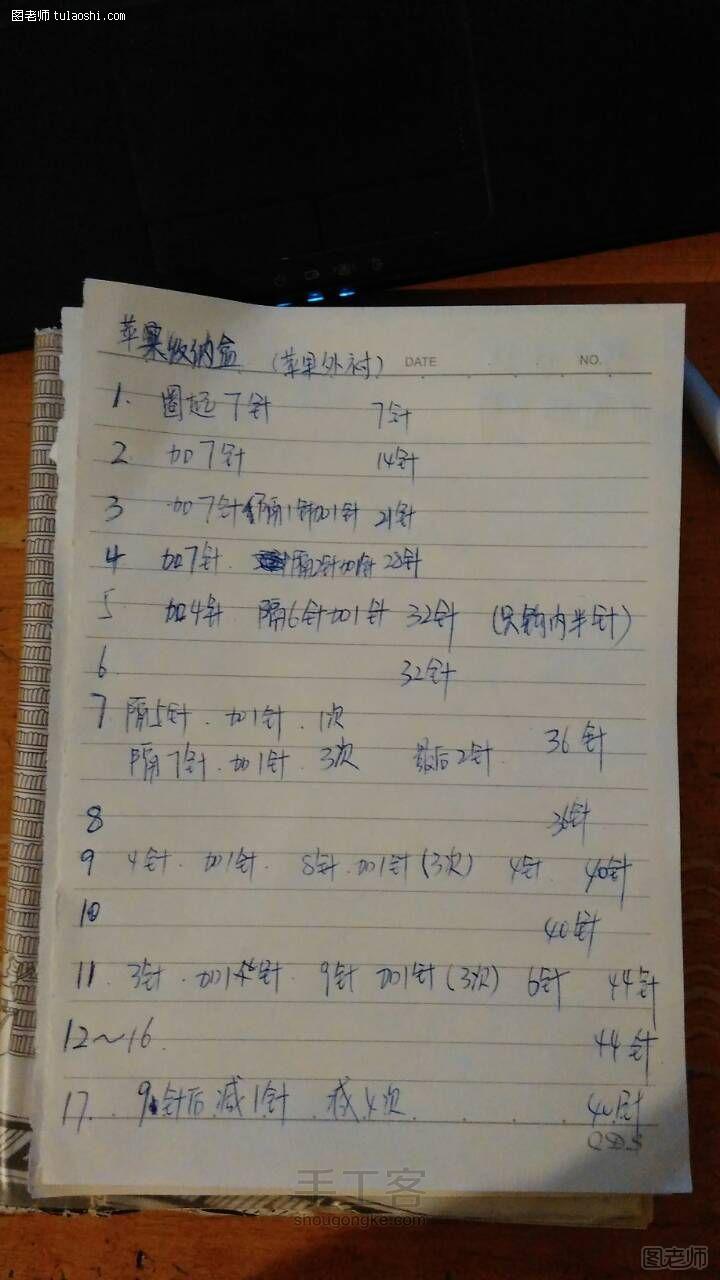 图老师 tulaoshi.com
苹果收纳盒 (苹果外衬) DATE NO.
1. 圈起7针 7针
2 加7针 14针
3 加7针 隔1针加1针 21针
4 加7针. 隔2针加1针 28针
5 加4针 隔6针加1针 32针 (只钩内半针)
6 32针
7 隔5针.加1针.1次
隔7针.加1针.3次 最后2针. 36针
8 36针
9 4针.加1针. 8针.加1针(3次) 4针. 40针
10 40针
11. 3针.加1针. 9针 加1针(3次) 6针 44针
12~16. 44针
17. 9针后减1针 减4次 40针
手工客
shougongke.com
图老师